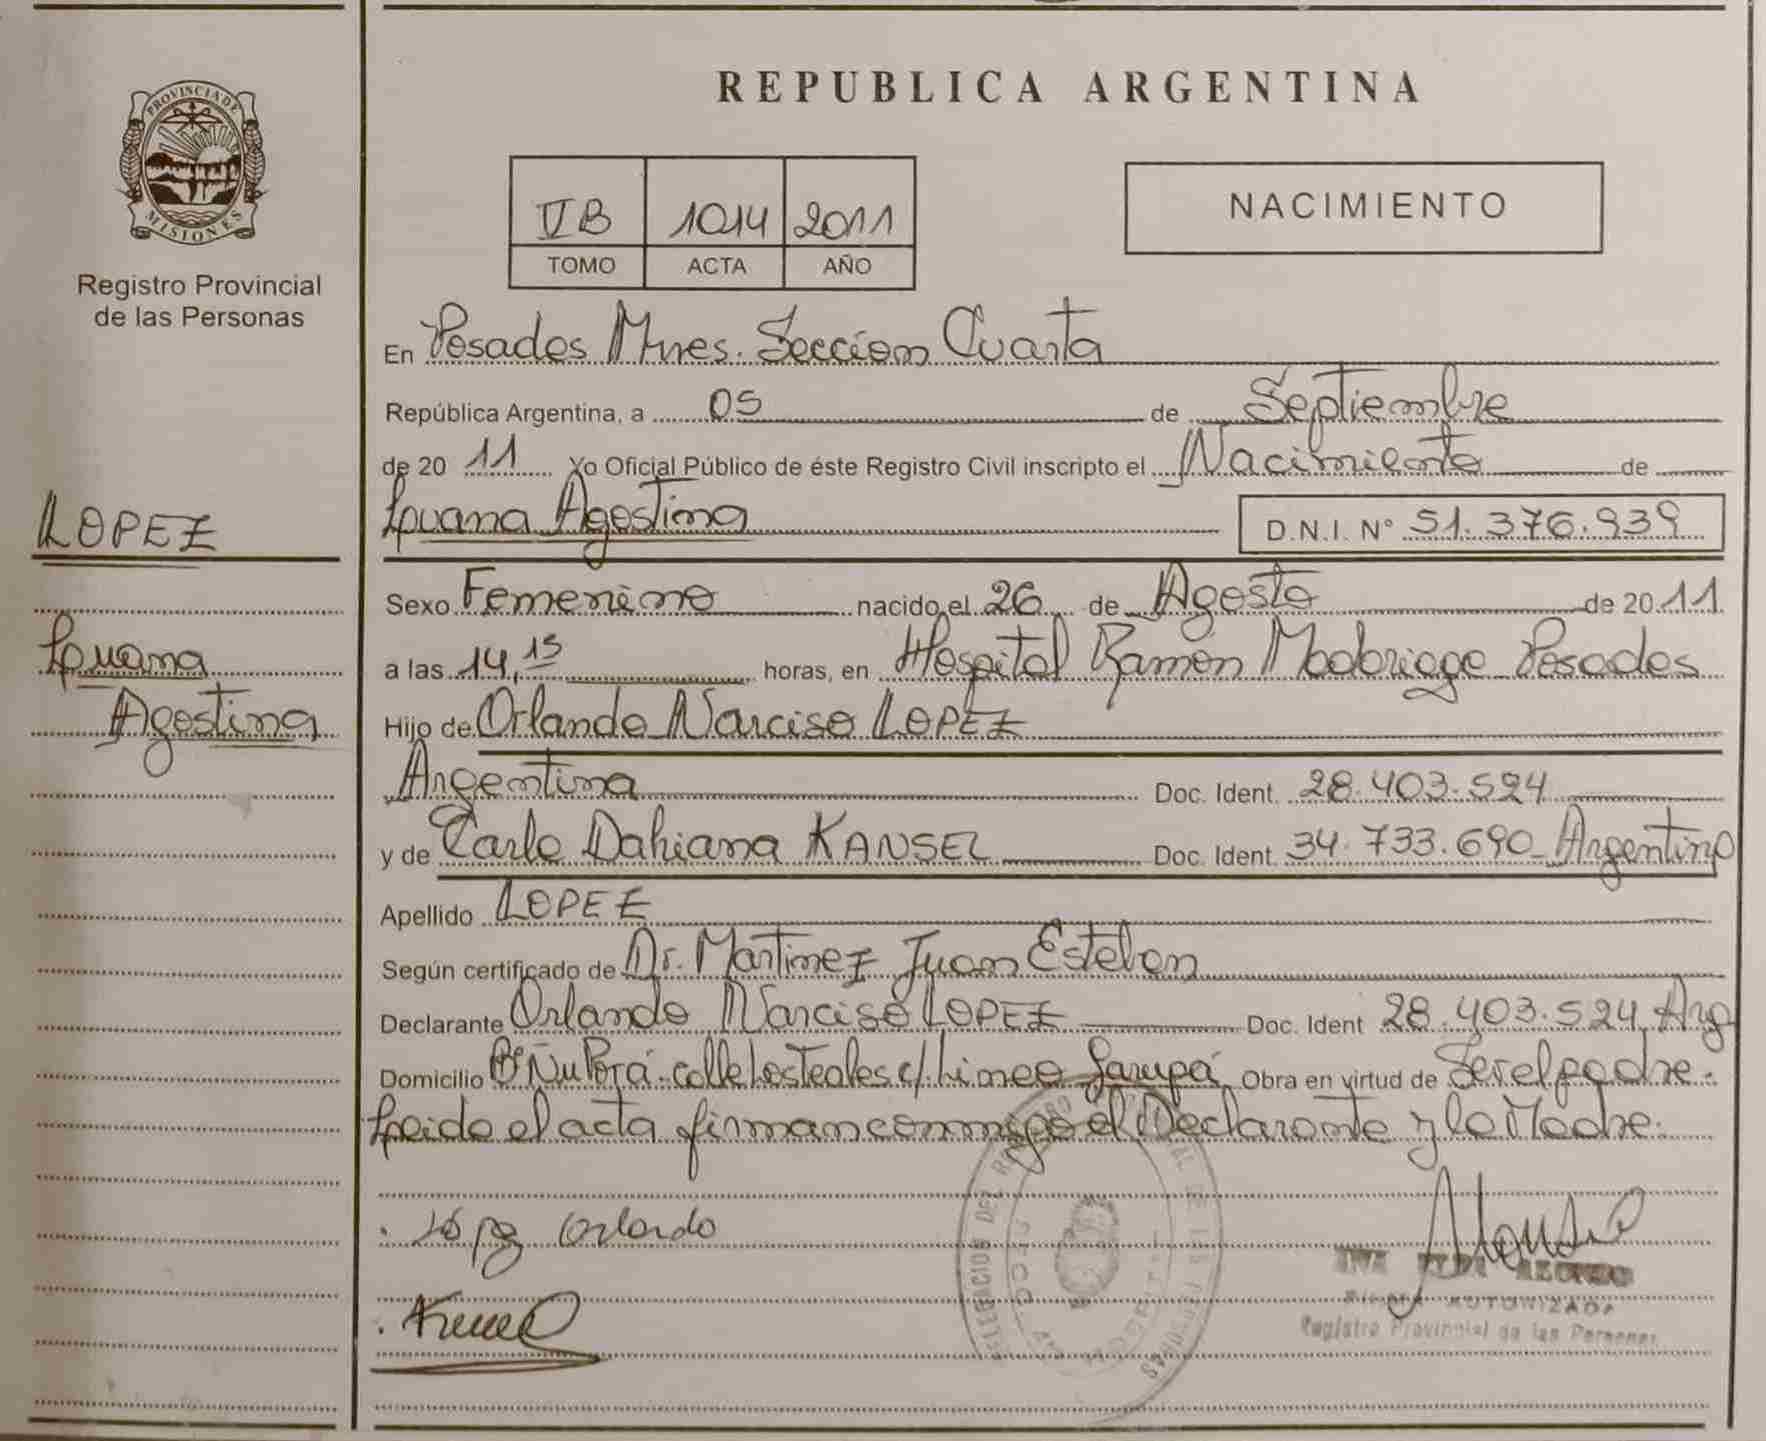 PROVINCIA DE
MISIONES
Registro Provincial
de las Personas
LOPEZ
Luana
Agostina
REPUBLICA ARGENTINA
VB 1014 2011
TOMO ACTA AÑO
NACIMIENTO
En Posadas Mnes. Sección Cuarta
República Argentina, a 05 de Septiembre
de 20 11 Yo Oficial Público de éste Registro Civil inscripto el Nacimiento de
Luana Agostina D.N.I. N° 51.376.939
Sexo Femenino nacido el 26 de Agosto de 20 11
a las 14,15 horas, en Hospital Ramón Madariaga Posadas
Hijo de Orlando Narciso LOPEZ
Argentina Doc. Ident. 28.403.524
y de Carla Dahiana KANSEL Doc. Ident. 34.733.690 Argentina
Apellido LOPEZ
Según certificado de Dr. Martinez Juan Esteban
Declarante Orlando Narciso LOPEZ Doc. Ident 28.403.524 Arg
Domicilio Bº Ñu Porá calle Los Teales c/ Lineo Garupá Obra en virtud de Ser el padre.
Leida el acta firman conmigo el Declarante y la Madre.
López Orlando
ALONSO
FIRMA AUTORIZADA
Registro Provincial de las Personas